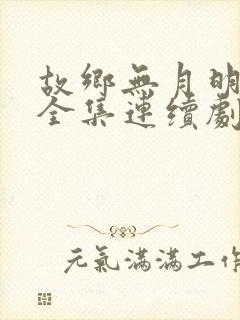 故鄉無月明
全集連續劇
元氣滿滿工作